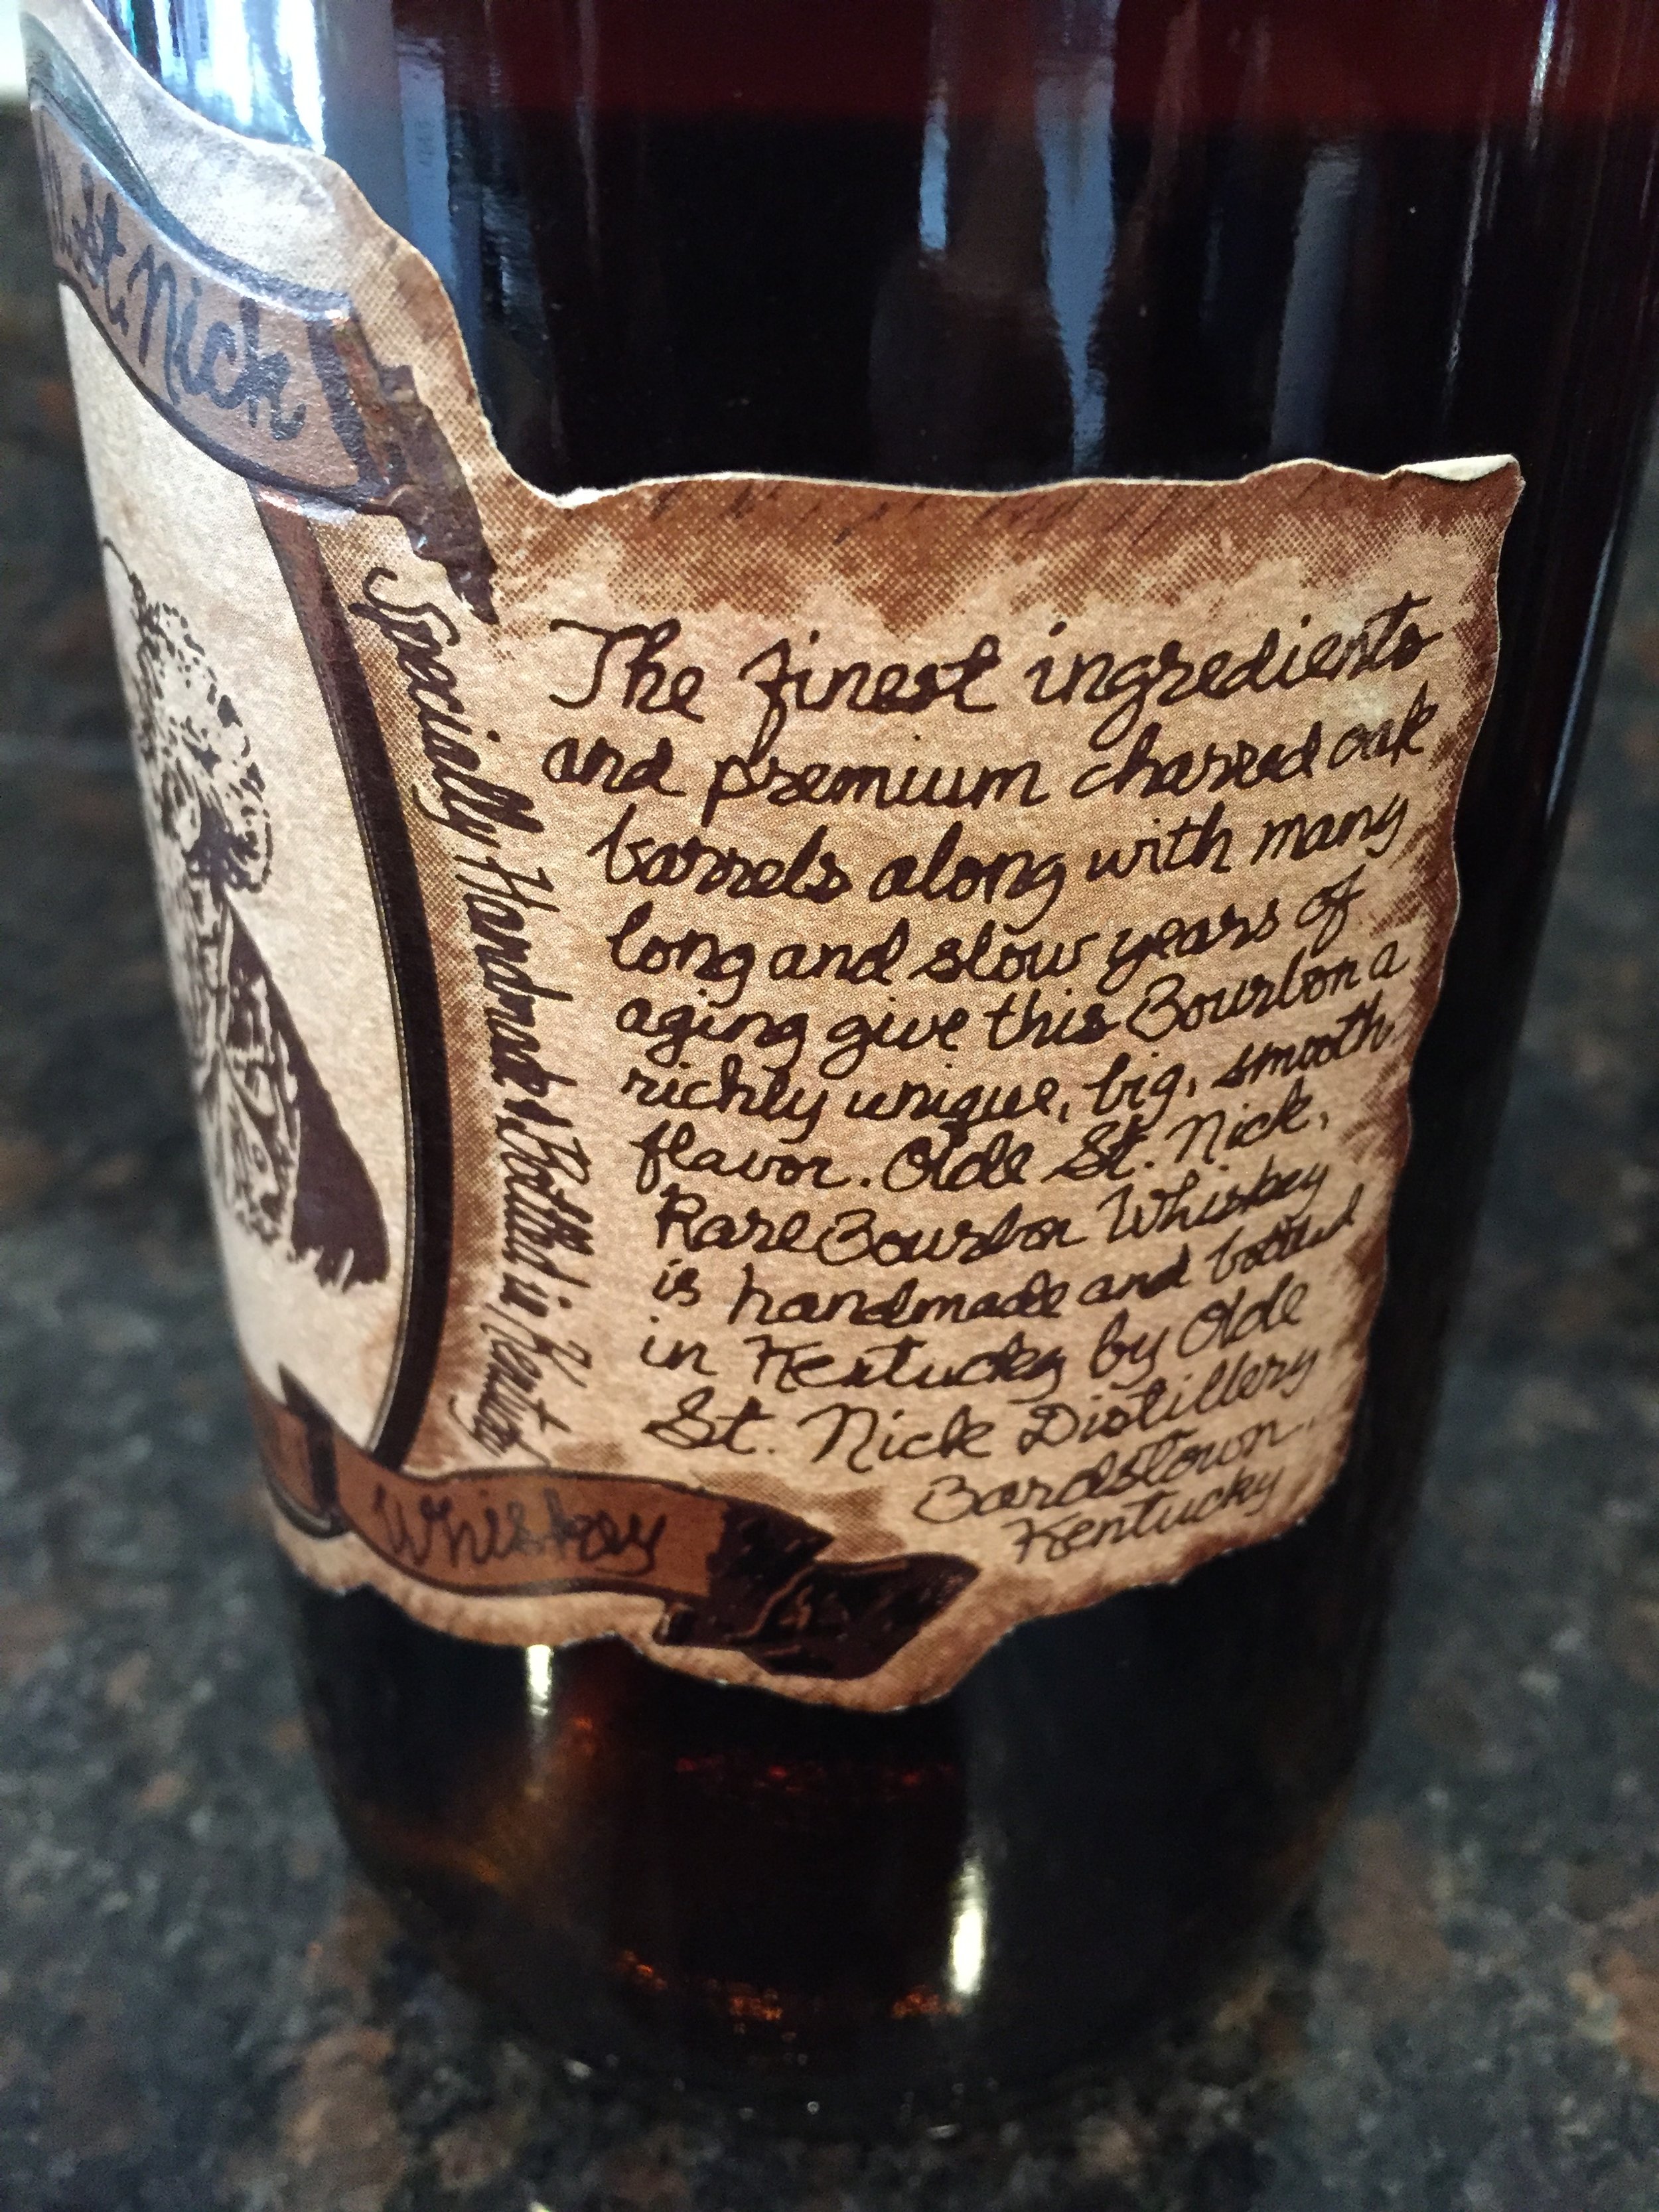 St. Nick
Specially Handmade & Bottled in Kentucky
The finest ingredients
and premium charred oak
barrels along with many
long and slow years of
aging give this Bourbon a
richly unique, big, smooth
flavor. Olde St. Nick,
Rare Bourbon Whiskey
is handmade and bottled
in Kentucky by Olde
St. Nick Distillery
Bardstown,
Kentucky
Whiskey